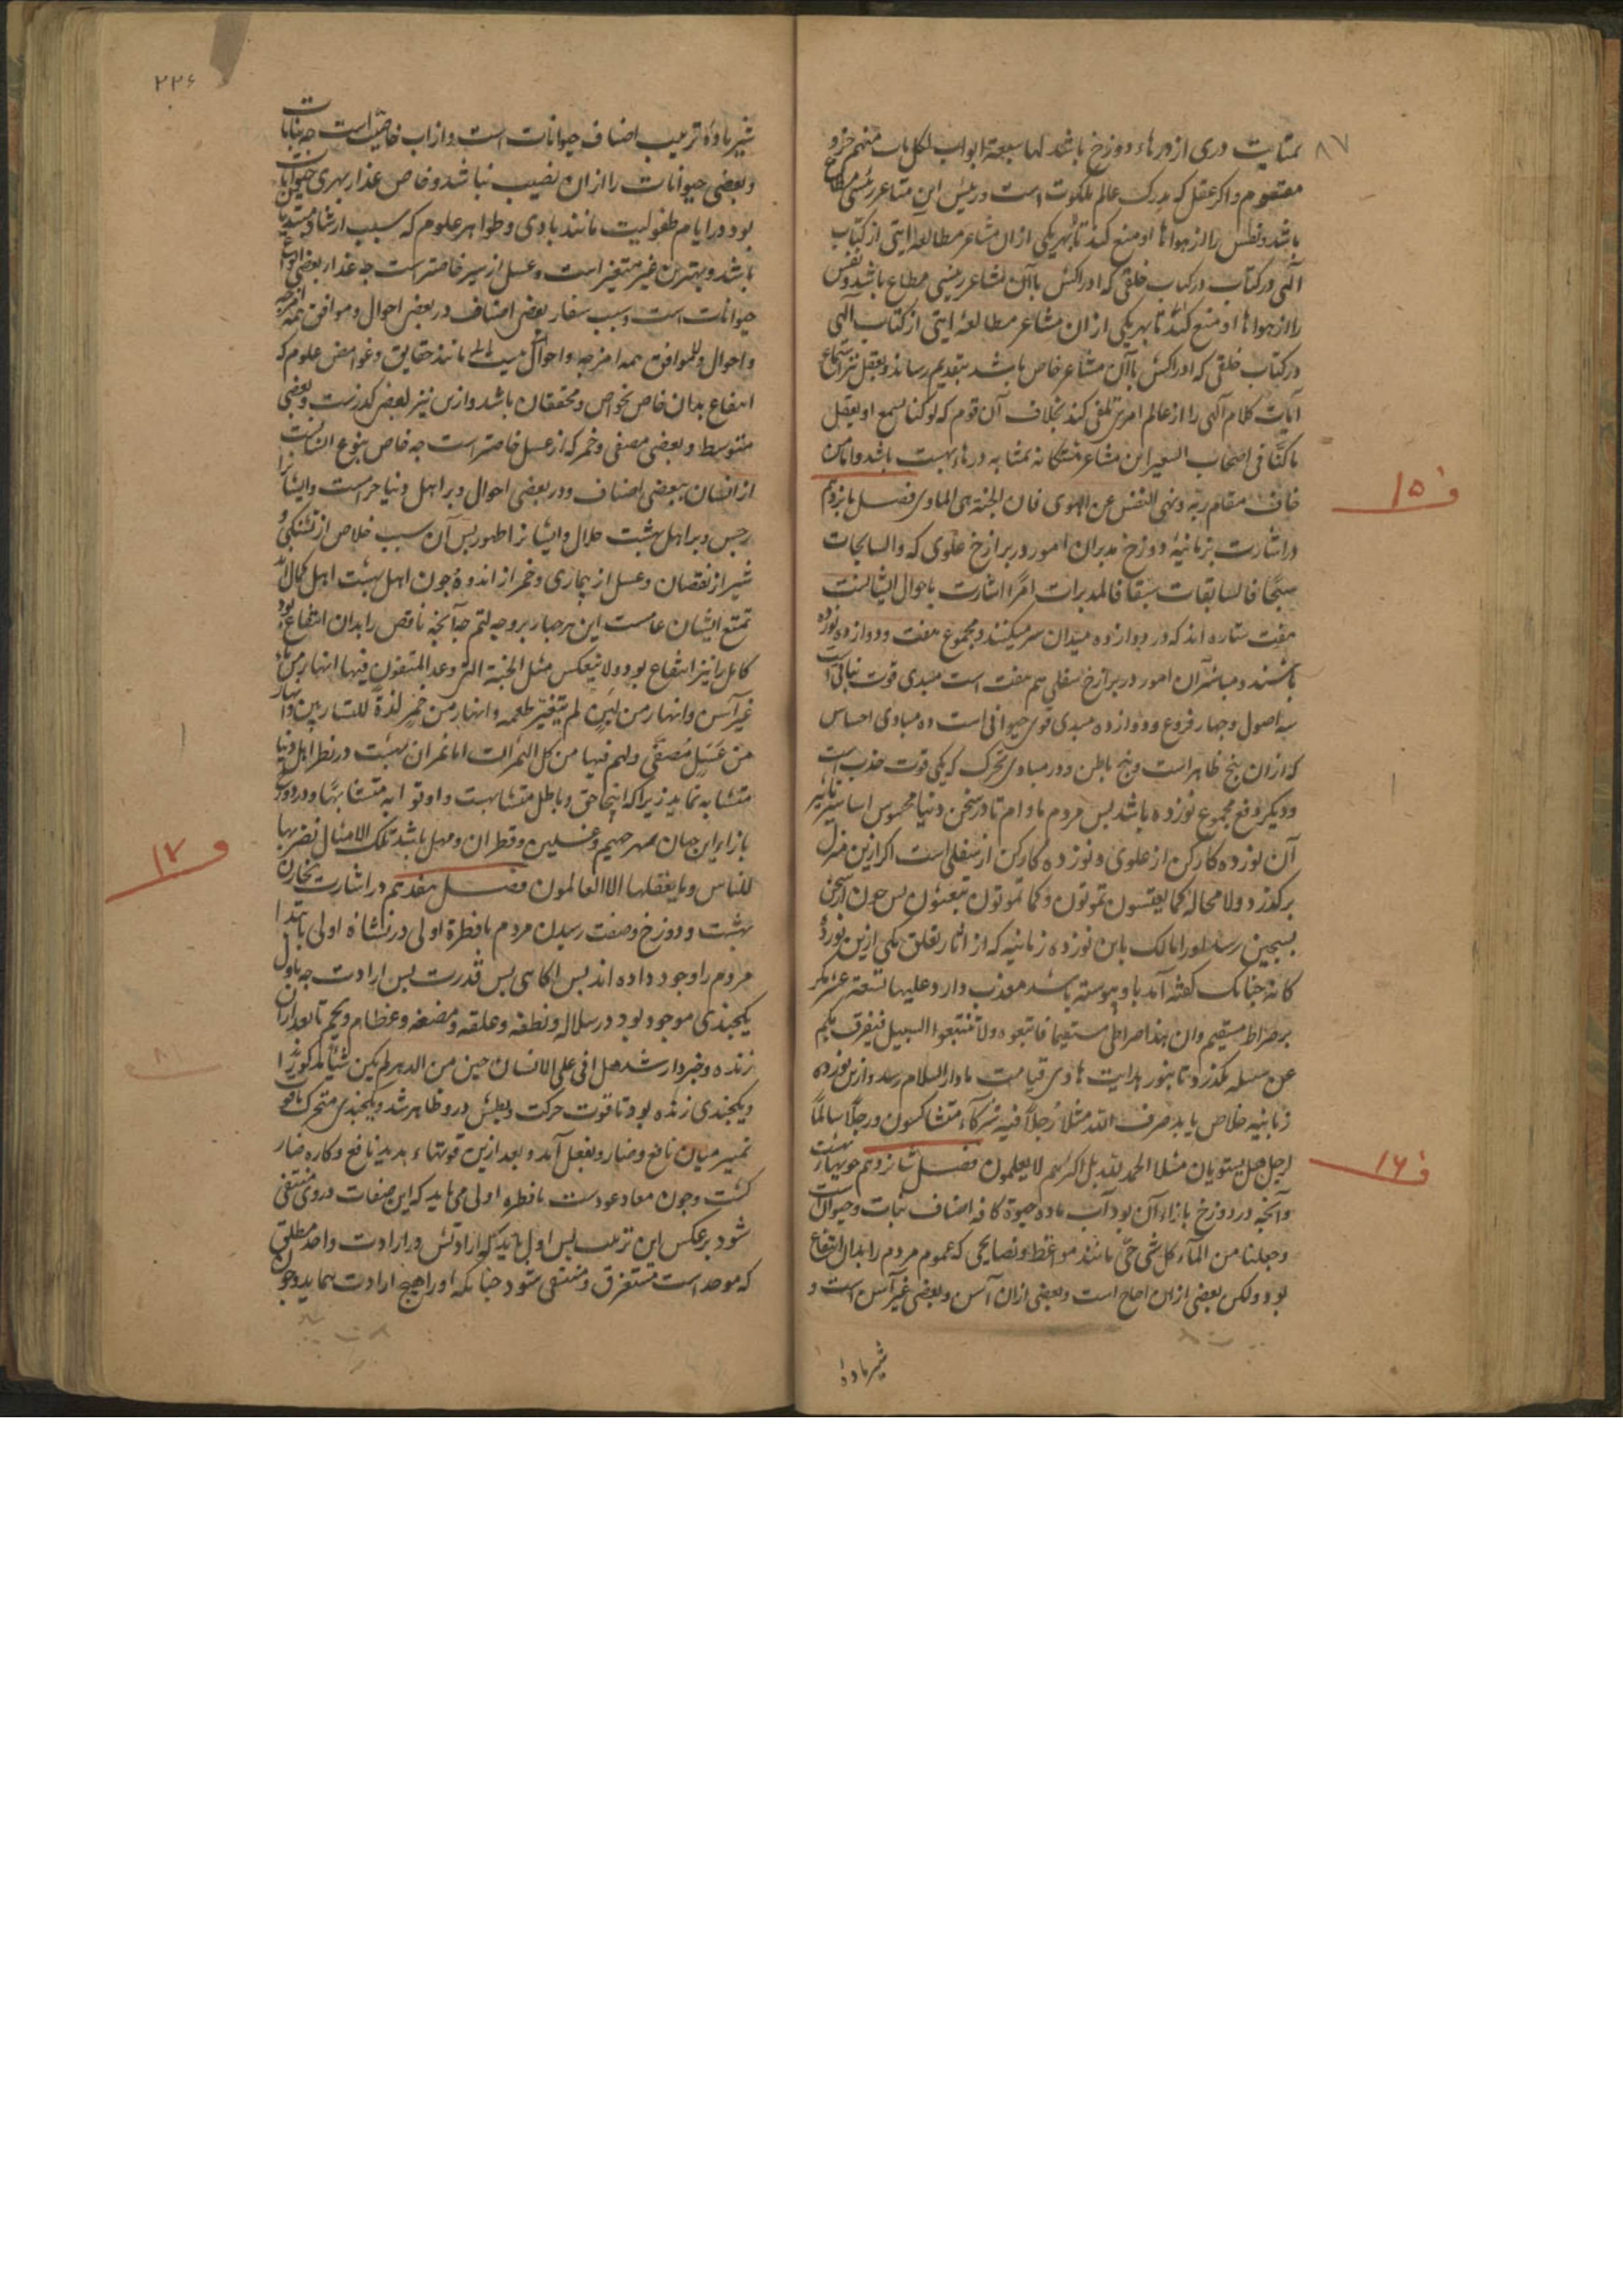 ۸۷
بمثابت دری از درهاء دوزخ باشد لها سبعة ابواب لکل باب منهم جزو
مقسوم واکر عقل که مدرک عالم ملکوت است و رئیس این مشاعر رئیسی مطاع
باشد و نفس را از هواها او منع کند تا بهر یکی ازان مشاعر مطالعه ایتی از کتاب
الهی در کتاب خلقی که ادراکش باآن مشاعر رئیسی مطاع باشد و نفس
را از هواها او منع کند تا بهر یکی ازان مشاعر مطالعۀ ایتی از کتاب الهی
در کتاب خلقی که ادراکش باآن مشاعر خاص باشد بتقدیم رساند و بعقل نیز استماع
آیات کلام الهی را از عالم امر تلقی کند بخلاف آن قوم که لو کنا نسمع او نعقل
ما کنا فی اصحاب السعیر این مشاعر هشتکانه بمثابه درهاء بهشت باشد واما من
خاف مقام ربه ونهی النفس عن الهوی فان الجنة هی الماوی فصل پانزدهم
ف ۱۵
در اشارت بزبانیۀ دوزخ مدبران امور در برازخ علوی که والسابحات
سبحا فالسابقات سبقا فالمدبرات امرا اشارت باحوال ایشانست
هفت ستاره اند که در دوازده میدان سیر میکنند و مجموع هفت و دوازده نوزده
باشند و مباشران امور در برازخ سفلی هم هفت است مبدی قوت نباتی
سه اصول و چهار فروع و دوازده مبدی قوی حیوانی است ده مبادی احساس
که ازان پنج ظاهر است و پنج باطن و دو مبادی تحریک که یکی قوت جذب است
و دیکر دفع مجموع نوزده باشد پس مردم مادام تا در سجن دنیا محبوس
آن نوزده کارکن از علوی و نوزده کارکن از سفلی است اکر ازین منزل
برکذرد ولا محاله کما یعیشون تموتون وکما تموتون تبعثون پس چون از سجن
بسجین رسد اورا مالک باین نوزده زبانیه که از اثار تعلق یکی ازین نوزده
کانه چنانک کفته آمد باو پیوسته باشد معذب دارد علیها تسعة عشر مکر
بر صراط مستقیم وان هذا صراطی مستقیما فاتبعوه ولا تتبعوا السبیل فتفرق بکم
عن سبیله بکذرد تا بنور هدایت هادی قیامت بدار السلام رسد و ازین نوزده
زبانیه خلاص یابد ضرب الله مثلا رجلا فیه شرکآء متشاکسون ورجلا سالما
لرجل هل یستویان مثلا الحمد لله بل اکثرهم لا یعلمون فصل شانزدهم در جویهاء بهشت
ف ۱۶
وآنچه در دوزخ بازاء آن بود آب ماده حیوة کافه اصناف نبات و حیوان است
وجعلنا من المآء کل شی حی مانند مواعظ و نصایحی که عموم مردم را بدان انتفاع
بود ولکن بعضی ازان اجاج است وبعضی ازان آسن وبعضی غیر آسن است و
شیر ماده
۲۲۶
شیر مادۀ تربیت اصناف حیوانات است و از آب خاصتر است چه نباتات
و بعضی حیوانات را ازان نصیب نباشد و خاص غذاء بهری حیوانات
بود در ایام طفولیت مانند بادی و ظواهر علوم که سبب ارشاد مبتدیان
باشد و بهترین غیر متغیر است و عسل از شیر خاصتر است چه غذاء بعضی
حیوانات است و سبب شفاء بعضی اصناف در بعضی احوال و موافق همه امزجه
و احوال نیست مانند حقایق و غوامض علوم که
انتفاع بدان خاص بخواص و محققان باشد و ازین نیز بعضی کدرست و بعضی
متوسط و بعضی مصفی و خمر که از عسل خاصتر است چه خاص بنوع انسانست
از انسان ببعضی اصناف و در بعضی احوال و بر اهل دنیا حرامست و ایشانرا
رجس و بر اهل بهشت حلال و ایشانرا طهور پس آب سبب خلاص از تشنکی و
شیر از نقصان و عسل از بیماری و خمر از اندوه چون اهل بهشت اهل کمال اند
تمتع ایشان عامست این هر چهار بر وجه اتم چه آنچه ناقص را بدان انتفاع بود
کامل را نیز انتفاع بود ولا ینعکس مثل الجنة التی وعد المتقون فیها انهار من ماء
غیر آسن وانهار من لبن لم یتغیر طعمه وانهار من خمر لذة للشاربین وانهار
من عسل مصفی ولهم فیها من کل الثمرات اما ثمرات بهشت در نظر اهل دنیا
متشابه نماید زیرا که اینجا حق و باطل متشابهست و اوتوا به متشابها و در دوزخ
بازاء این چهار حمیم و غسلین و قطران و مهل باشد تلک الامثال نضربها
للناس وما یعقلها الا العالمون فصل هفدهم در اشارت بخازن
ف ۱۷
بهشت و دوزخ و صفت رسیدن مردم با فطرة اولی در نشاة اولی بابتدا
مردم را وجود داده اند پس آکاهی پس قدرت پس ارادت چه باول
یکچندی موجود بود در سلاله و نطفه و علقه و مضغه و عظام و لحم تا بعد ازان
زنده و خبردار شد هل اتی علی الانسان حین من الدهر لم یکن شیئا مذکورا
و یکچندی زنده بود تا قوت حرکت و بطش درو ظاهر شد و یکچندی متحرک بود تا قوت
تمییز میان نافع و ضار و بفعل آمد و بعد ازین قوتهاء بدید نافع و کاره ضار
کشت و چون معاد عودست با فطره اولی می باید که این صفات در وی منتفی
شود بر عکس این ترتیب پس اول باید که ارادتش در ارادت واحد مطلق
که موحد است مستغرق و منتفی شود چنانکه اورا هیچ ارادت نماید و چون